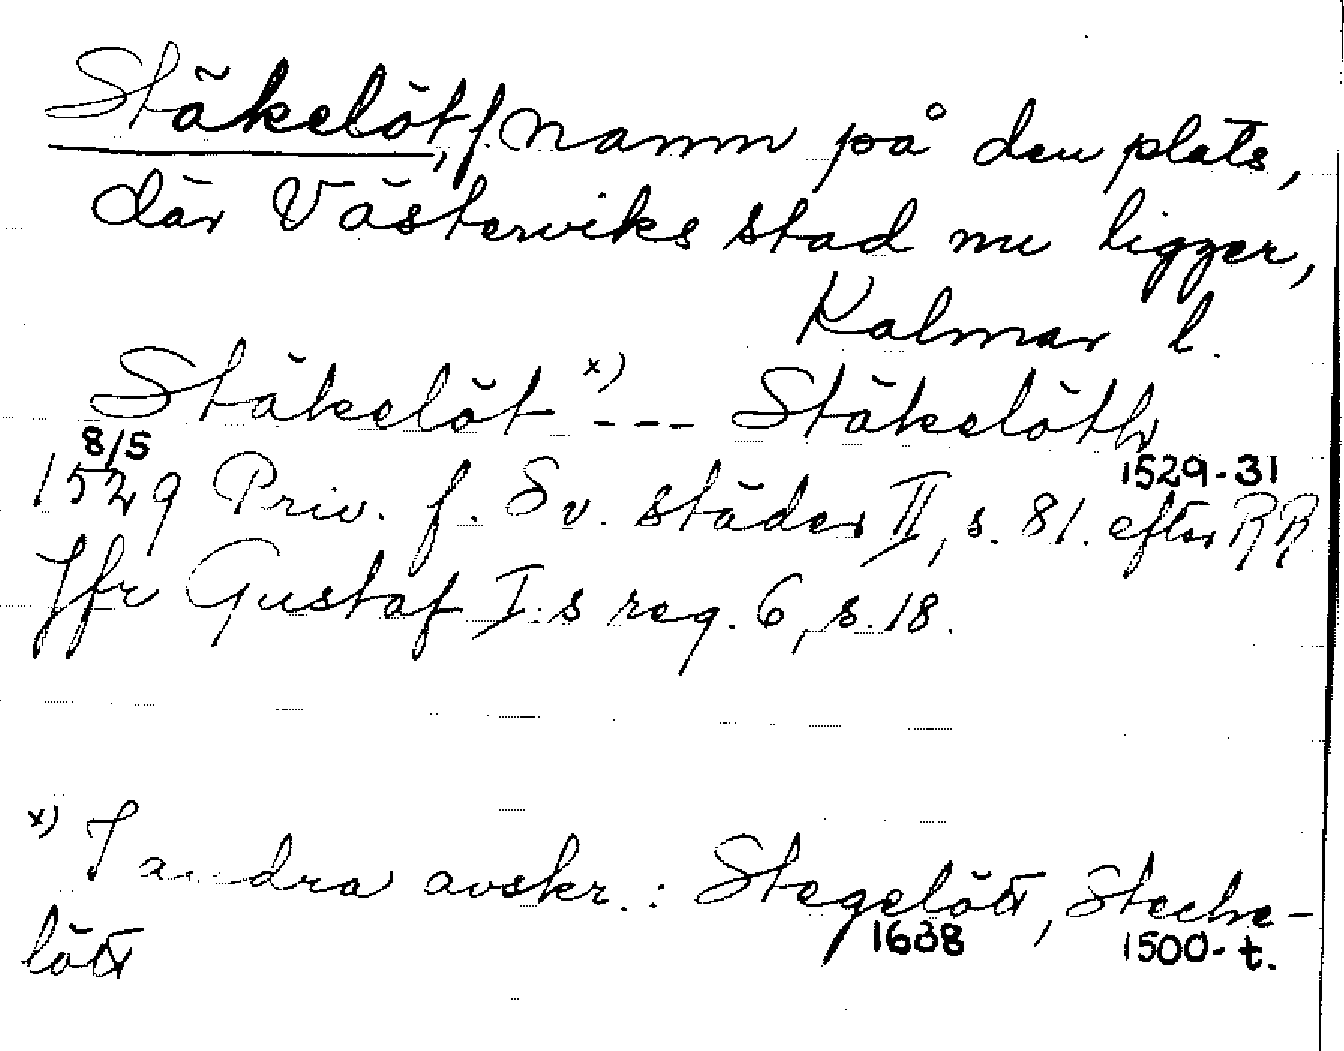 Stäkelöt, f. namn på den plats,
där Västerviks stad nu ligger,
Kalmar l.
Stäkelöt x) --- Stäkelöth
8/5 1529-31
1529 Priv. f. Sv. städer II, s. 81. efter RR
Jfr Gustaf I:s reg. 6, s. 18.
x) I andra avskr.: Stegelött, Steche-
1638 1500-t.
lött